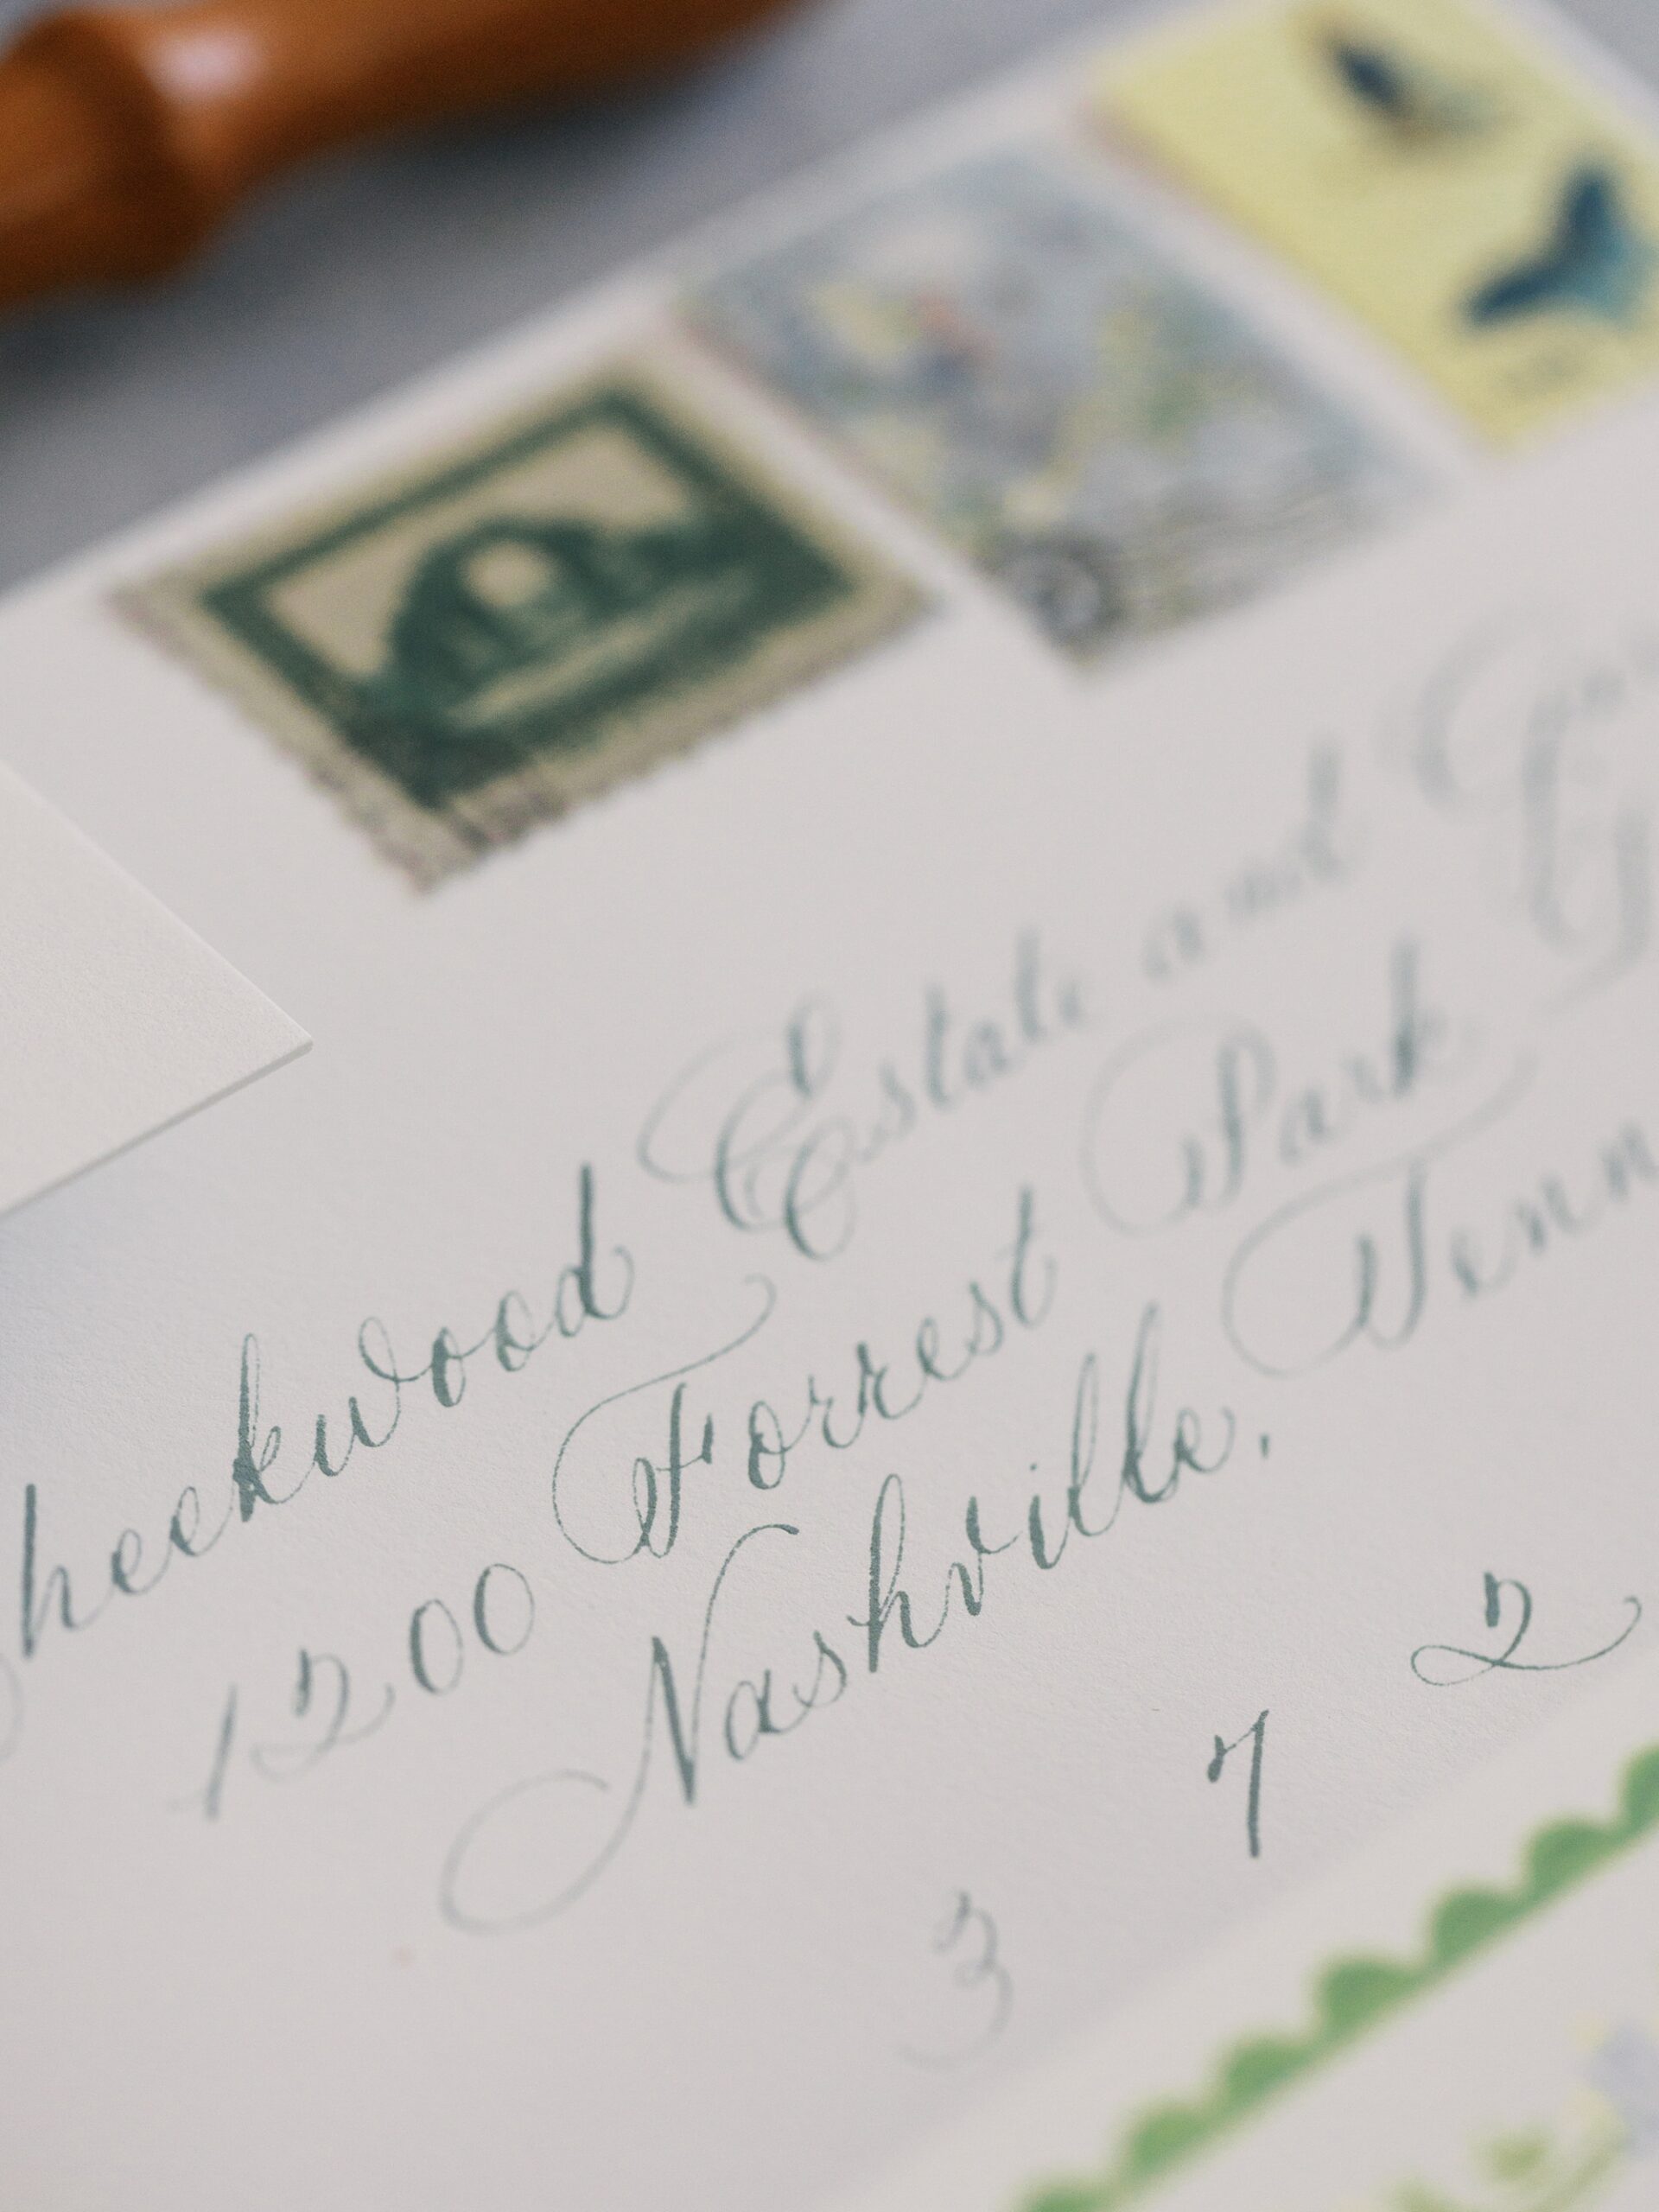 heekwood Estate and
1200 Forrest Park
Nashville, Tenn
3 7 2